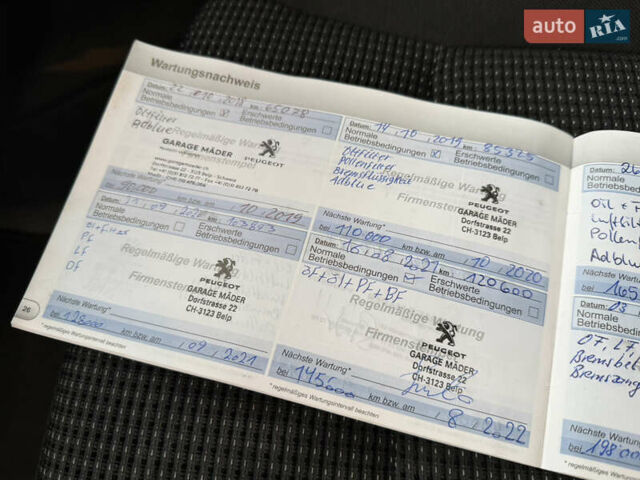 auto RIA .com
Wartungsnachweis
Datum: 22.10.2018 km: 65078
Normale Betriebsbedingungen
Erschwerte Betriebsbedingungen
Ölfilter
Adblue
Regelmäßige Wartung
Firmenstempel
GARAGE MÄDER
PEUGEOT
Nächste Wartung*
bei 90000 km bzw. am 10/2019
Datum: 14.10.2019 85325
Normale Betriebsbedingungen
Erschwerte Betriebsbedingungen
Ölfilter
Pollenfilter
Bremsflüssigkeit
Adblue
Regelmäßige Wartung
Firmenstempel
PEUGEOT
GARAGE MÄDER
Dorfstrasse 22
CH-3123 Belp
Nächste Wartung*
bei 110000 km bzw. am 10/2020
Normale Betriebsbedingungen
Erschwerte Betriebsbedingungen
PF
LF
Regelmäßige Wartung
Firmenstempel
PEUGEOT
GARAGE MÄDER
Dorfstrasse 22
CH-3123 Belp
Nächste Wartung*
bei 128000 km bzw. am 09/2021
* regelmäßiges Wartungsintervall beachten
26
Datum: 16.08.2021 120600
Normale Betriebsbedingungen
Erschwerte Betriebsbedingungen
ÖF+Öl+PF+BF
Regelmäßige Wartung
Firmenstempel
PEUGEOT
GARAGE MÄDER
Dorfstrasse 22
CH-3123 Belp
Nächste Wartung*
bei 145000 km bzw. am 8/2022
* regelmäßiges Wartungsintervall beachten
Datum: 26
Normale
Betriebsbedi
Oil + F
Luftfilt
Pollen
Adblu
Nächste Wartu
bei 165
Datum: 03
Normale
Betriebsbedin
07.27
Bremsbel
Nächste Wartung
bei 198000